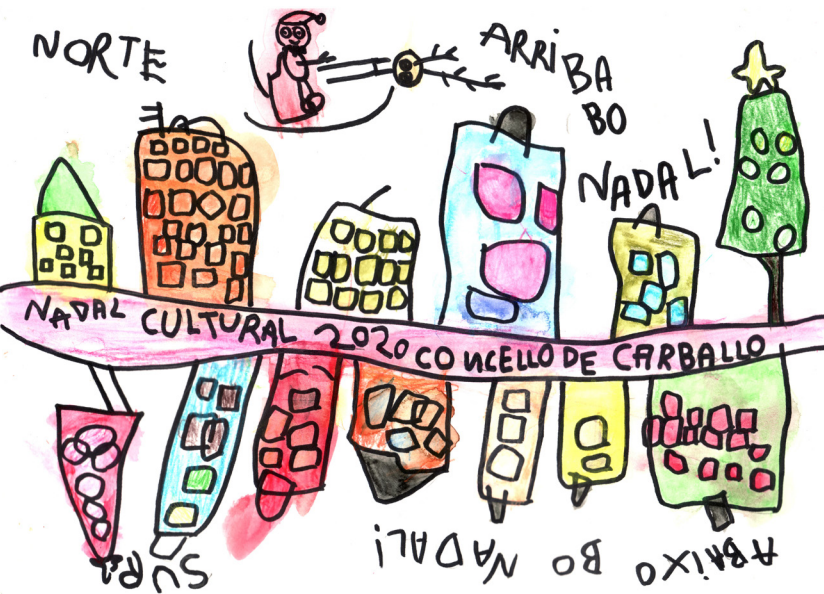 NORTE
ARRIBA
BO
NADAL!
NADAL CULTURAL 2020 CONCELLO DE CARBALLO
ABAIXO BO NADAL!
SUR